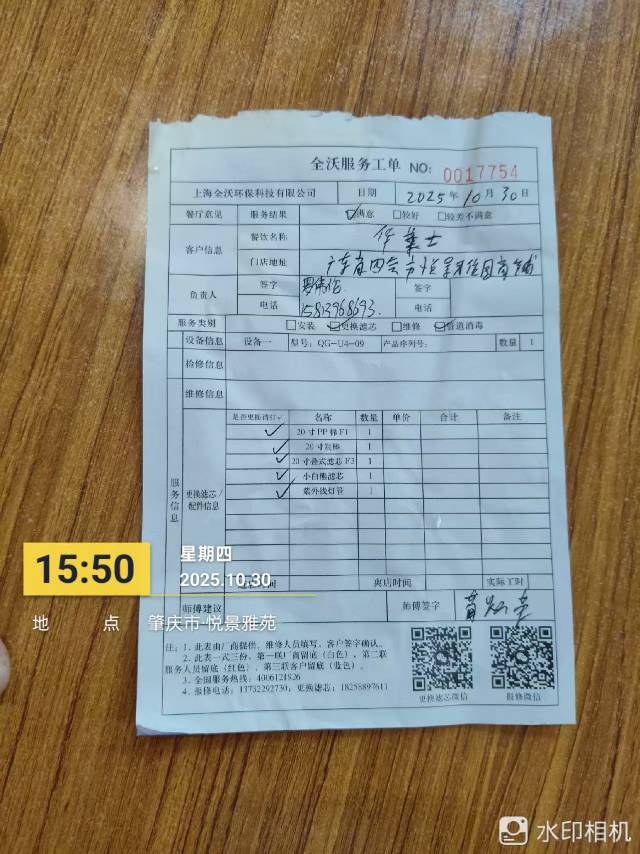 全沃服务工单 NO: 0017754
上海全沃环保科技有限公司 日期 2025年10月30日
餐厅意见 服务结果 ☑满意 □较好 □较差不满意
客户信息 餐饮名称 华莱士
门店地址 广东省四会市悦景雅苑商铺
负责人 签字 签字
电话 电话
服务类别 □安装 ☑更换滤芯 □维修 ☑管道消毒
设备信息 设备一 型号: QG-U4-09 产品序列号: 数量 1
检修信息
维修信息
服务信息
更换滤芯/配件信息
是否更换请打✓ 名称 数量 单价 合计 备注
✓ 20寸PP棉F1 1
✓ 20寸炭棒 1
✓ 20寸叠式滤芯F3 1
✓ 小白熊滤芯 1
✓ 紫外线灯管 1
时间 离店时间 实际工时
师傅建议 师傅签字
注: 1. 此表由厂商提供、维修人员填写、客户签字确认。
2. 此表一式三份、第一联厂商留底(白色)、第二联
服务人员留底(红色)、第三联客户留底(蓝色)。
3. 全国服务热线: 4006121826
4. 报修电话: 13732292730; 更换滤芯: 18258897611
更换滤芯微信 报修微信
15:50
星期四
2025.10.30
地 点 肇庆市·悦景雅苑
水印相机